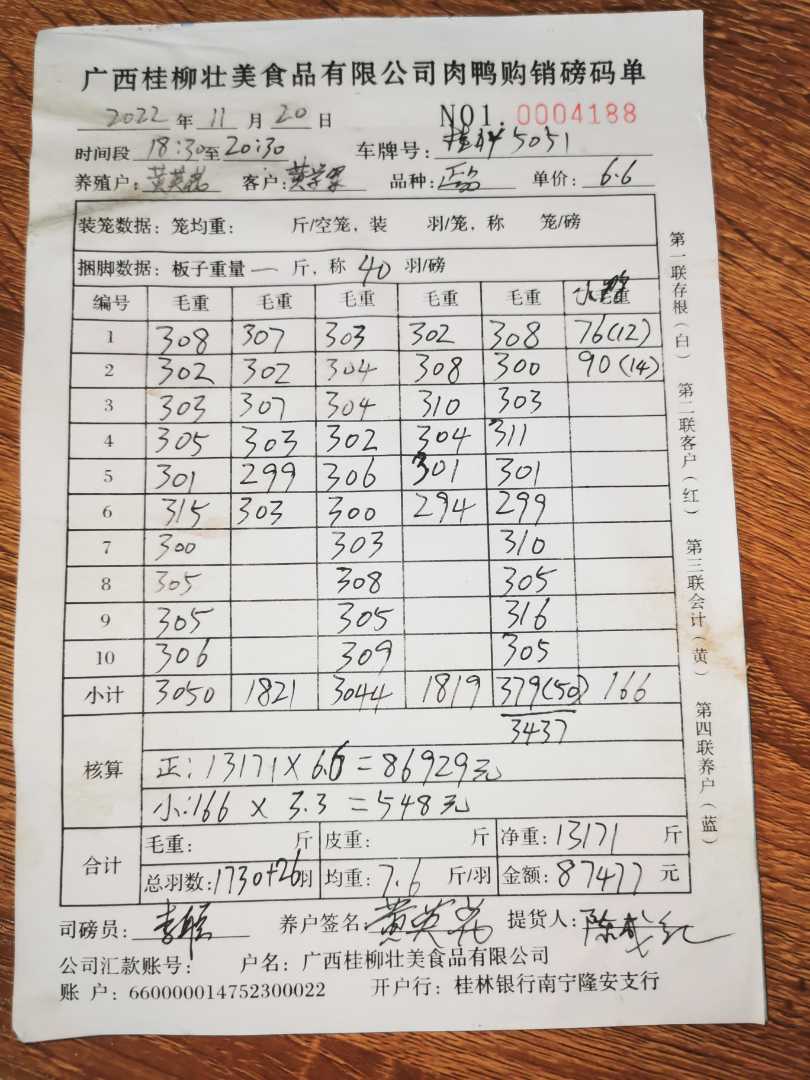 广西桂柳壮美食品有限公司肉鸭购销磅码单
2022 年 11 月 20 日 NO1. 0004188
时间段 18:30至20:30 车牌号: 5051
养殖户: 黄英 客户: 黄 品种: 单价: 6.6
装笼数据: 笼均重: 斤/空笼, 装 羽/笼, 称 笼/磅
捆脚数据: 板子重量 一 斤, 称 40 羽/磅
编号 毛重 毛重 毛重 毛重 毛重 小
1 308 307 303 302 308 76(12)
2 302 302 304 308 300 90(14)
3 303 307 304 310 303
4 305 303 302 304 311
5 301 299 306 301 301
6 315 303 300 294 299
7 300 303 310
8 305 308 305
9 305 305 316
10 306 309 305
小计 3050 1821 3044 1819 379(50) 166
3437
核算 正: 13171 X 6.6 = 86929元
小: 166 X 3.3 = 548元
合计 毛重: 斤 皮重: 斤 净重: 13171 斤
总羽数: 1730+26羽 均重: 7.6 斤/羽 金额: 87477 元
司磅员: 李 养户签名: 黄英 提货人: 陈
公司汇款账号: 户名: 广西桂柳壮美食品有限公司
账 户: 660000014752300022 开户行: 桂林银行南宁隆安支行
第一联存根(白) 第二联客户(红) 第三联会计(黄) 第四联养户(蓝)